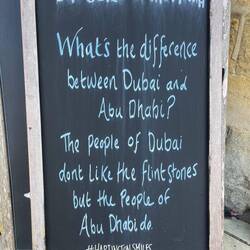 What's the difference
between Dubai and
Abu Dhabi?
The people of Dubai
dont like the flintstones
but the People of
Abu Dhabi do